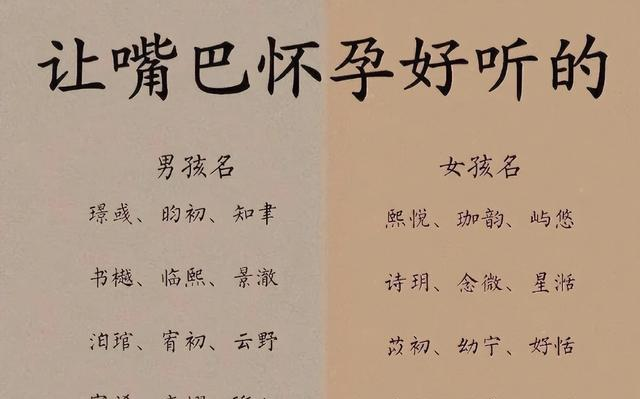 让嘴巴怀孕好听的
男孩名
璟彧、昀初、知聿
书樾、临熙、景澈
泊琯、宥初、云野
女孩名
熙悦、珈韵、屿悠
诗玥、念微、星湉
苡初、幼宁、好恬